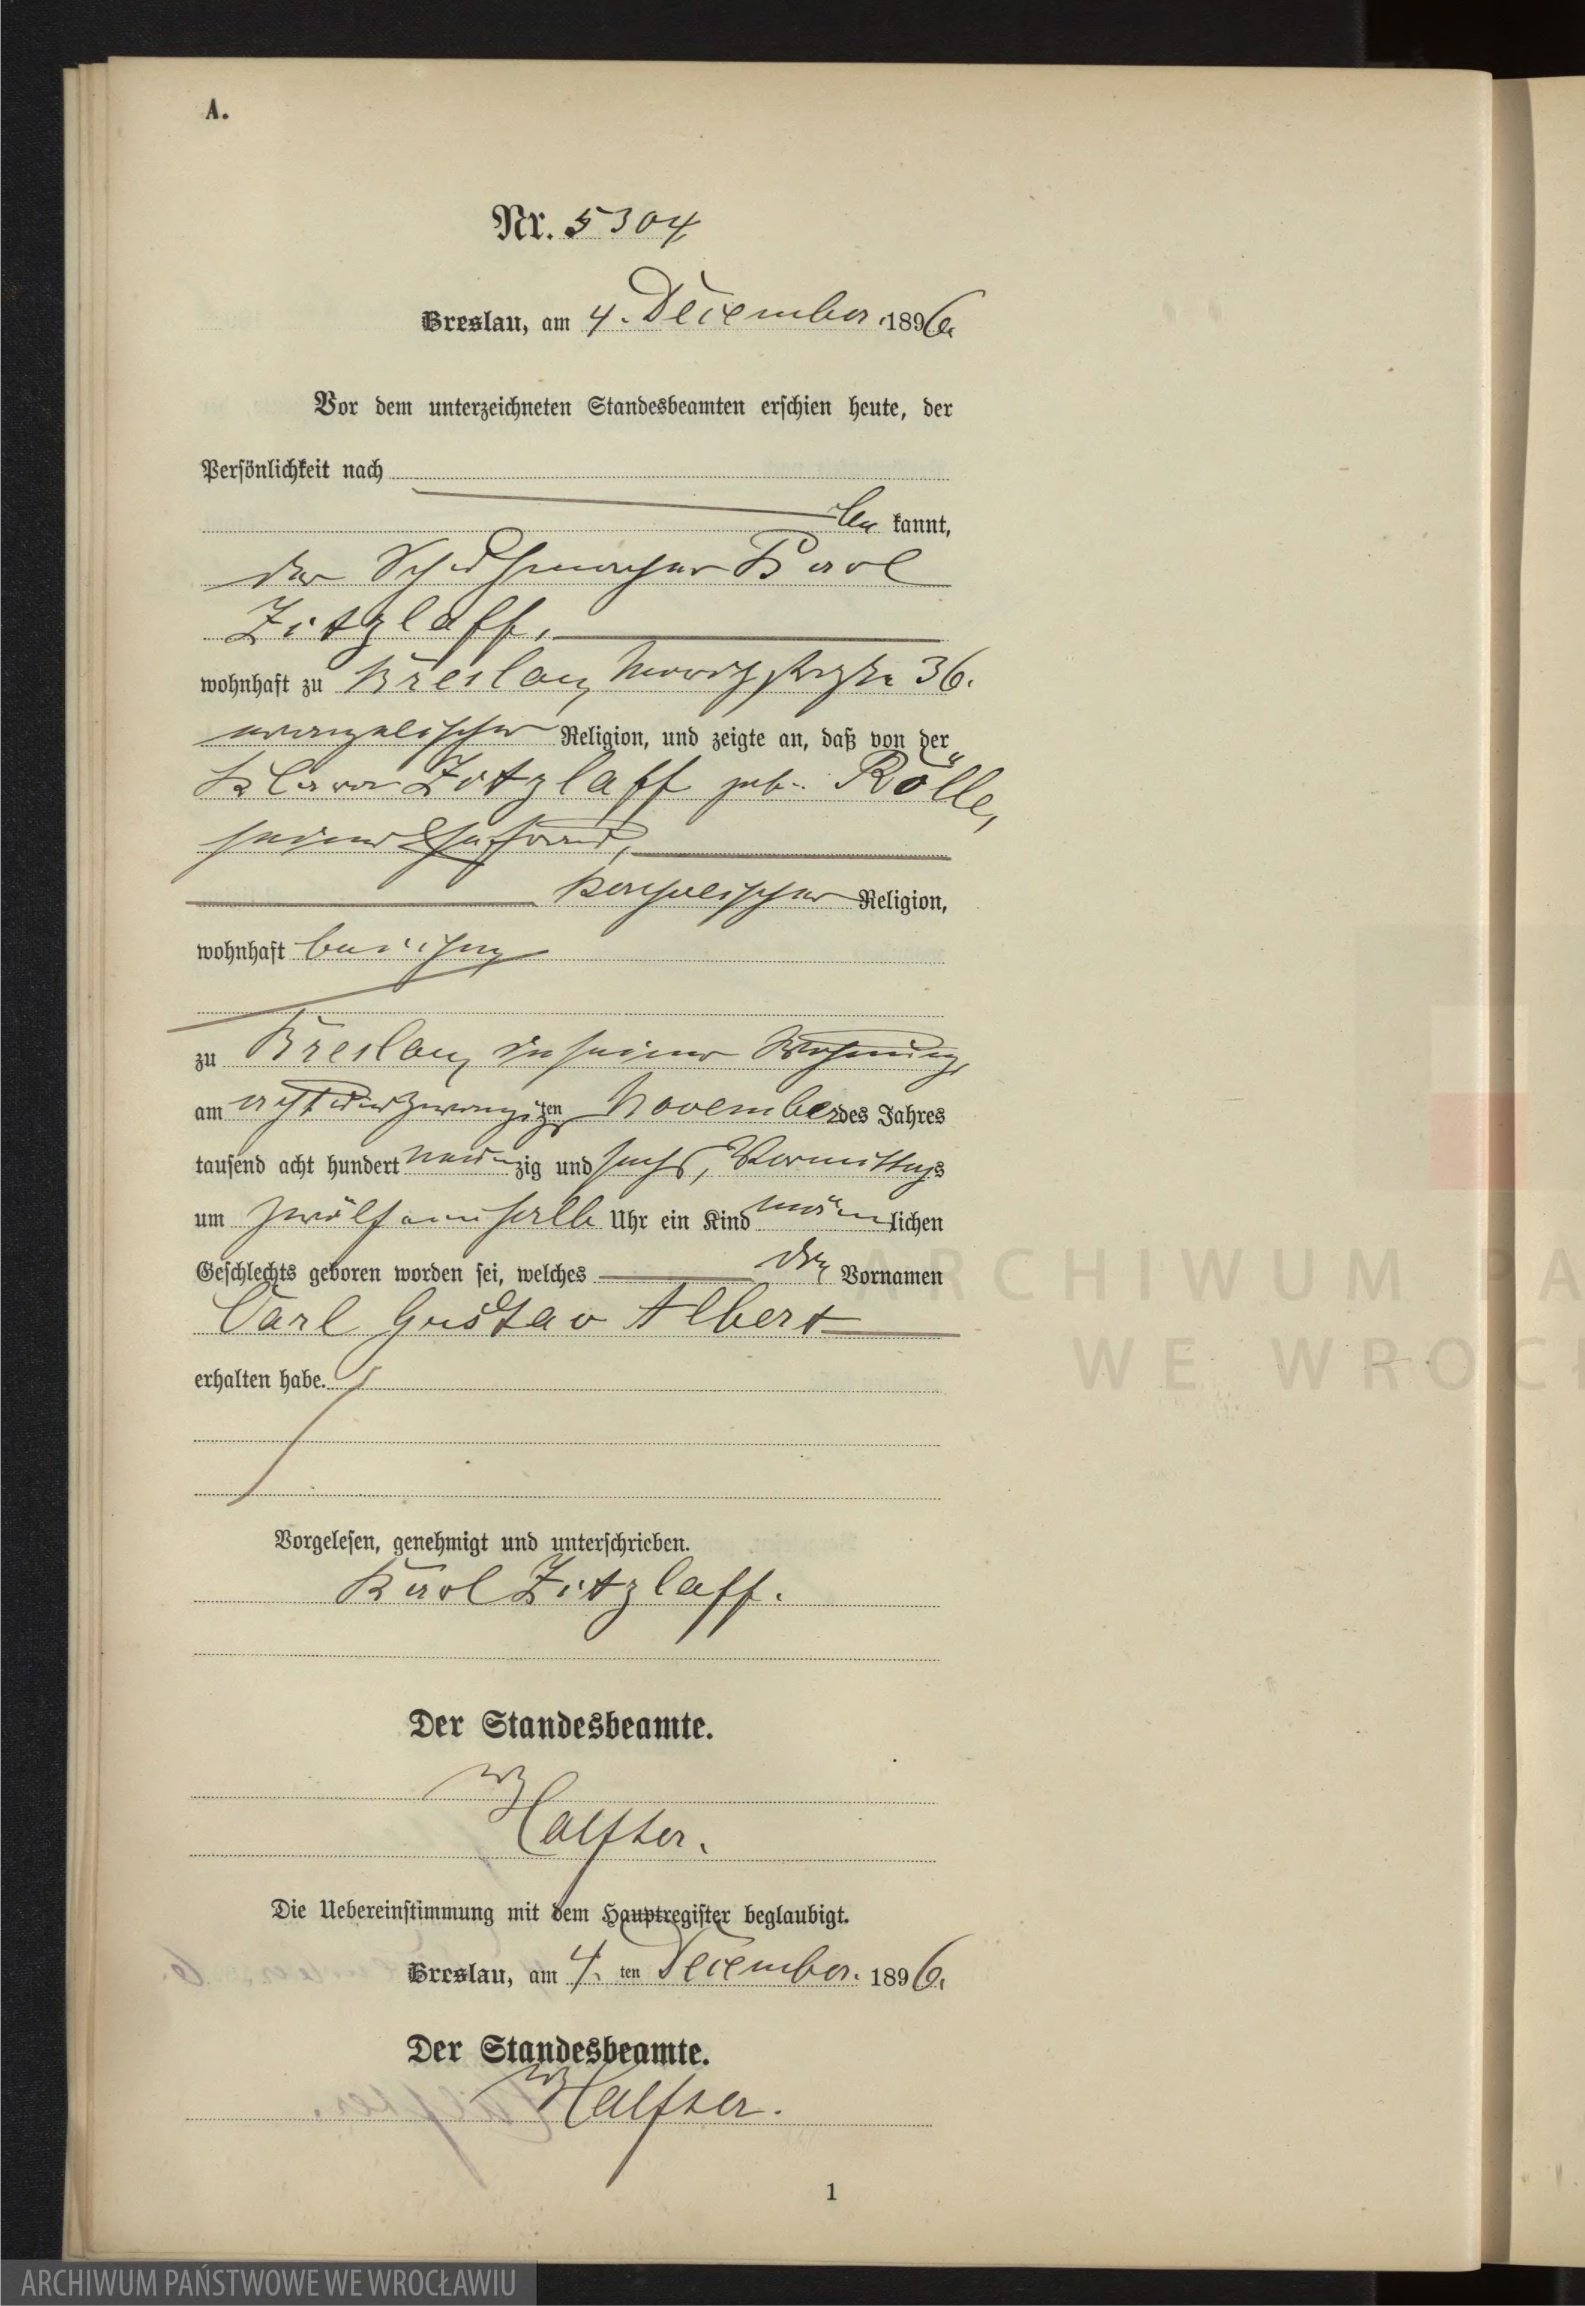 A.
Nr. 5304
Breslau, am 4. December 1896.
Vor dem unterzeichneten Standesbeamten erschien heute, der
Persönlichkeit nach
be kannt,
der Schuhmacher Karl
Zitzlaff,
wohnhaft zu Breslau, Moritzstraße 36.
evangelischer Religion, und zeigte an, daß von der
Klara Zitzlaff geb. Rölle,
seiner Ehefrau,
katholischer Religion,
wohnhaft bei ihm
zu Breslau, in seiner Wohnung,
am acht und zwanzigten November des Jahres
tausend acht hundert neunzig und sechs, Vormittags
um zwölf einhalb Uhr ein Kind männlichen
Geschlechts geboren worden sei, welches die Vornamen
Carl Gustav Albert
erhalten habe.
Vorgelesen, genehmigt und unterschrieben.
Karl Zitzlaff.
Der Standesbeamte.
Halfter.
Die Uebereinstimmung mit dem Hauptregister beglaubigt.
Breslau, am 4. ten December. 1896.
Der Standesbeamte.
Halfter.
1
ARCHIWUM PA
WE WROCŁ
ARCHIWUM PAŃSTWOWE WE WROCŁAWIU